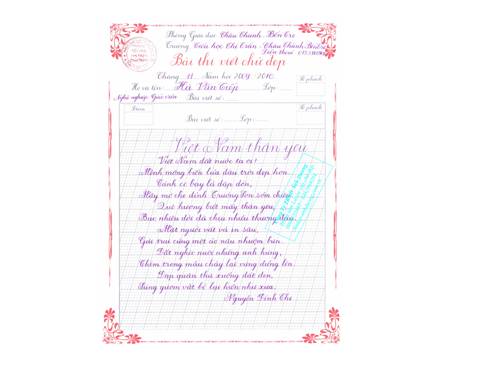 Phòng Giáo dục Châu Thành - Bến Tre
Trường Tiểu học Thị Trấn - Châu Thành Bến Tre
Điện thoại
Bài thi viết chữ đẹp
Tháng 11 Năm học 2009 2010
Họ và tên: Hà Văn Tiếp Lớp
Nghề nghiệp: Giáo viên Bài viết số:
Số phách
Điểm
Bài viết số: Lớp:
Số phách
Việt Nam thân yêu
Việt Nam đất nước ta ơi!
Mênh mông biển lúa đâu trời đẹp hơn
Cánh cò bay lả dập dờn,
Mây mờ che đỉnh Trường Sơn sớm chiều.
Quê hương biết mấy thân yêu,
Bao nhiêu đời đã chịu nhiều thương đau,
Mặt người vất vả in sâu,
Gái trai cũng một áo nâu nhuộm bùn.
Đất nghèo nuôi những anh hùng,
Chìm trong máu chảy lại vùng đứng lên.
Đạp quân thù xuống đất đen,
Súng gươm vứt bỏ lại hiền như xưa.
Nguyễn Đình Thi